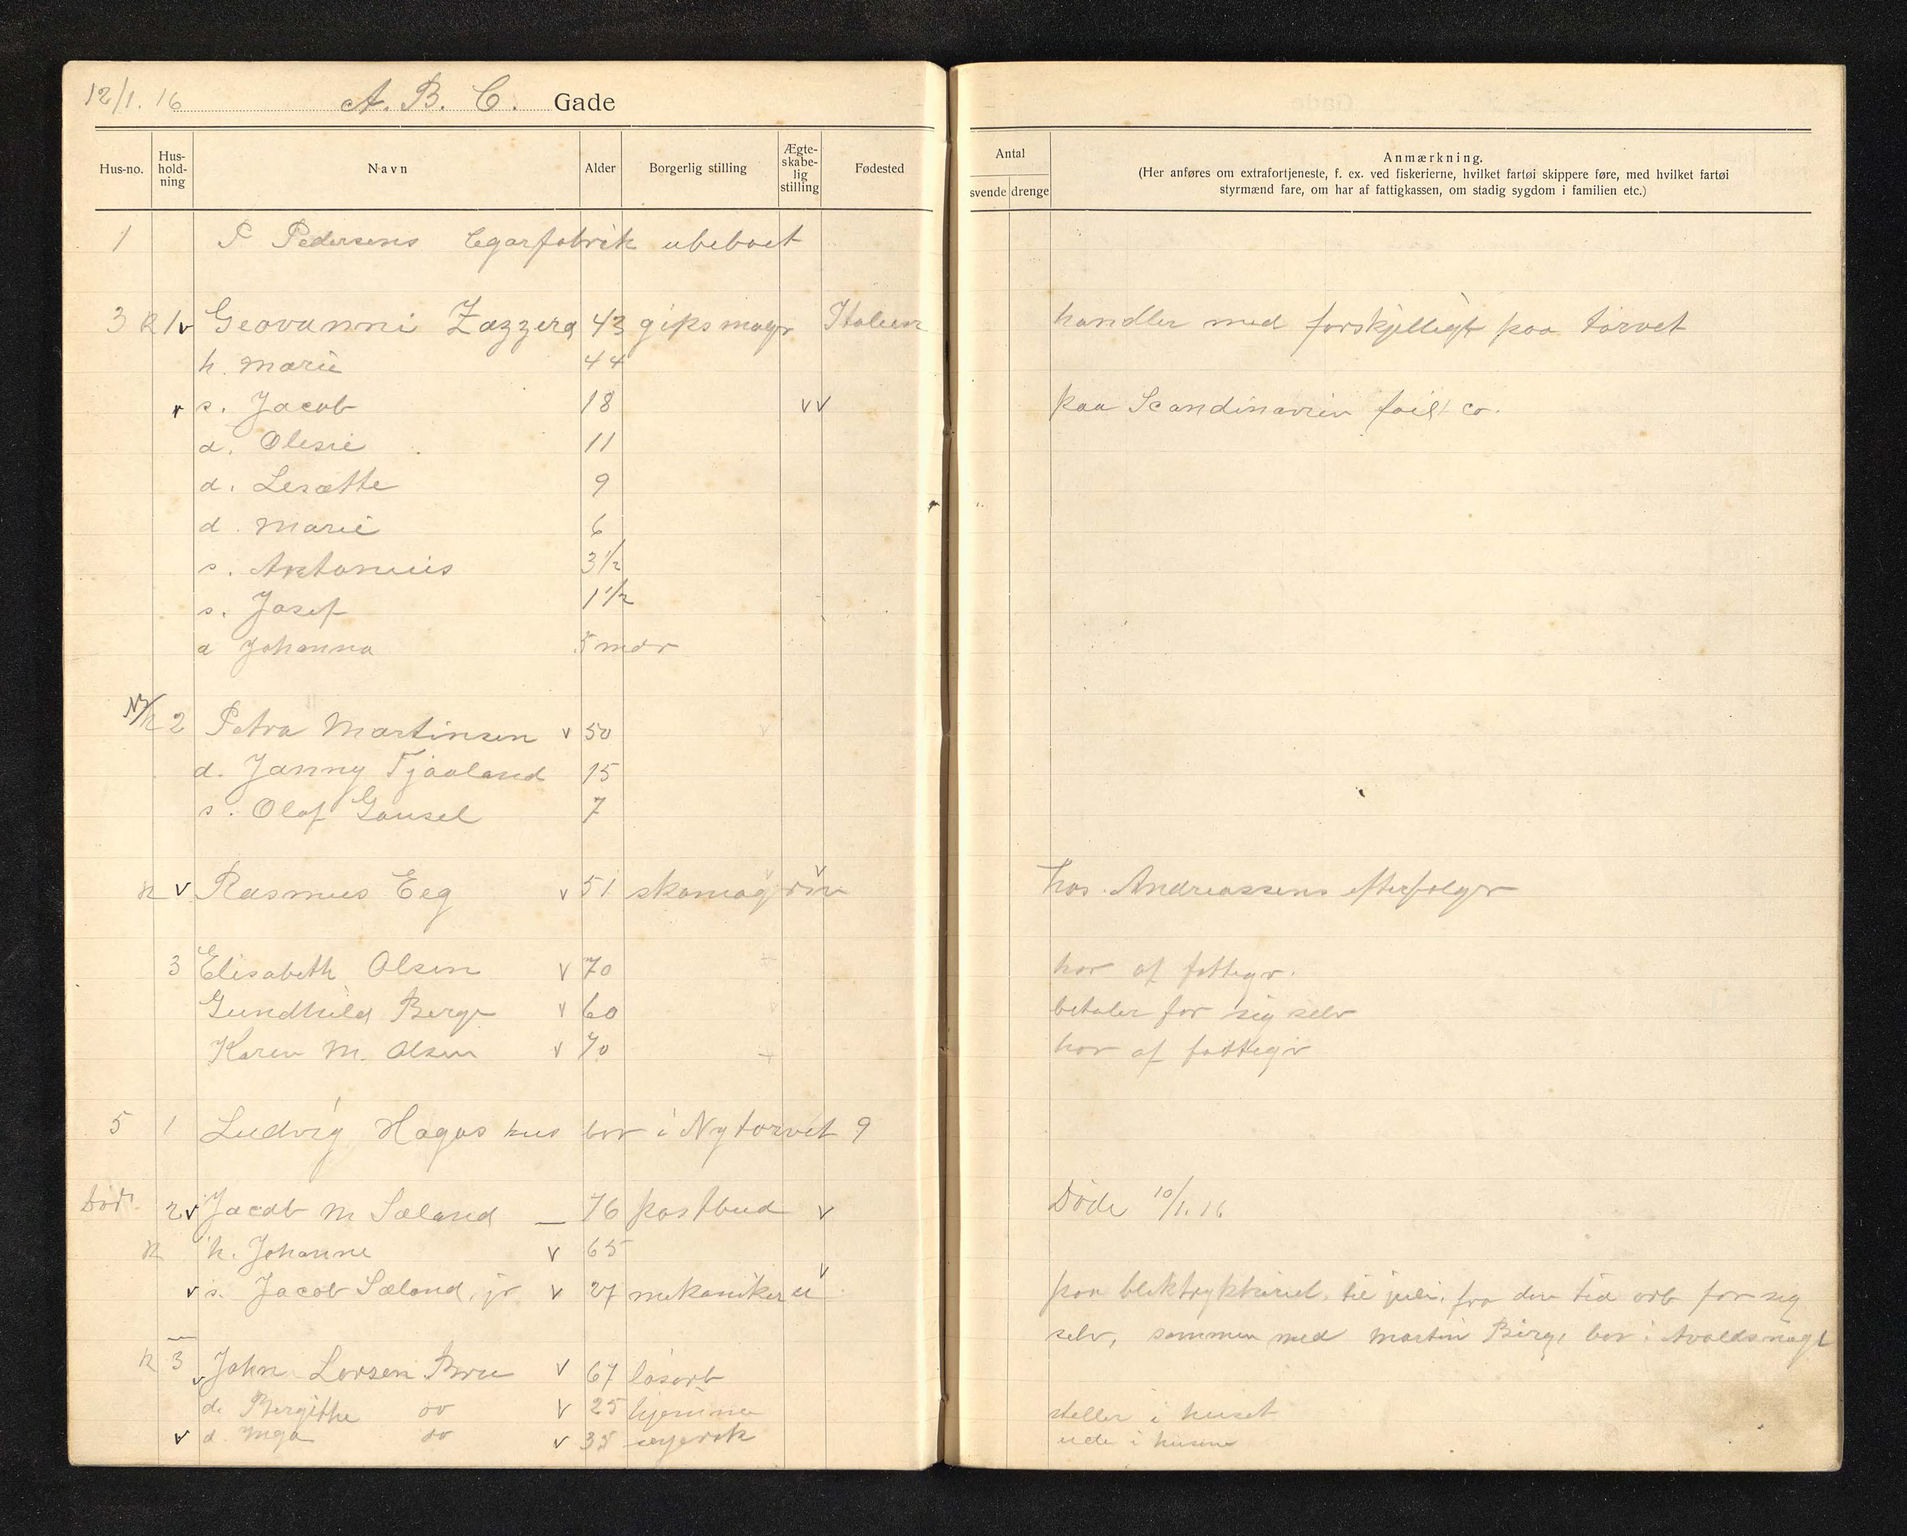 12/1. 16 A. B. C. Gade
Hus-no. Hus-hold-ning Navn Alder Borgerlig stilling Ægte-skabe-lig stilling Fødested Antal svende drenge Anmærkning.
(Her anføres om extrafortjeneste, f. ex. ved fiskerierne, hvilket fartøi skippere føre, med hvilket fartøi
styrmænd fare, om har af fattigkassen, om stadig sygdom i familien etc.)
1 P Pedersens Cigarfabrik ubeboet
3 n 1 v Geovanni Zazzera 43 gipsmager Italien handler med forskjelligt paa torvet
h. Marie 44
v s. Jacob 18 v v paa Scandinavien co.
d. Olesie 11
d. Lesætte 9
d. Marie 6
s. Antonius 3 1/2
s. Josef 1 1/2
d Johanna 5 mdr
n 2 Petra Martinsen v 50
d. Janny Tjaaland 15
s. Olaf Gausel 7
n v Rasmus Eeg v 51 skomag hos Andreassens efterfølger
3 Elisabeth Olsen v 70 har af fattegv.
Gundhild Berge v 60 betaler for sig selv
Karen M. Olsen v 70 har af fattegv
5 1 Ludvig Hagas hus bor i Nytorvet 9
Død 2 v Jacob M Sæland — 76 postbud v Døde 10/1. 16
n h. Johanne v 65
v s. Jacob Sæland, jr v 27 mekaniker u v paa til juli, fra den tid arb for sig
selv, sammen med Martin Berge bor i Avaldsnæsg
n 3 v John Larsen Bru v 67 løsarb
d. Bergithe do v 25 hjemme steller i huset
v d. Inga do v 35 syersk ude i husene